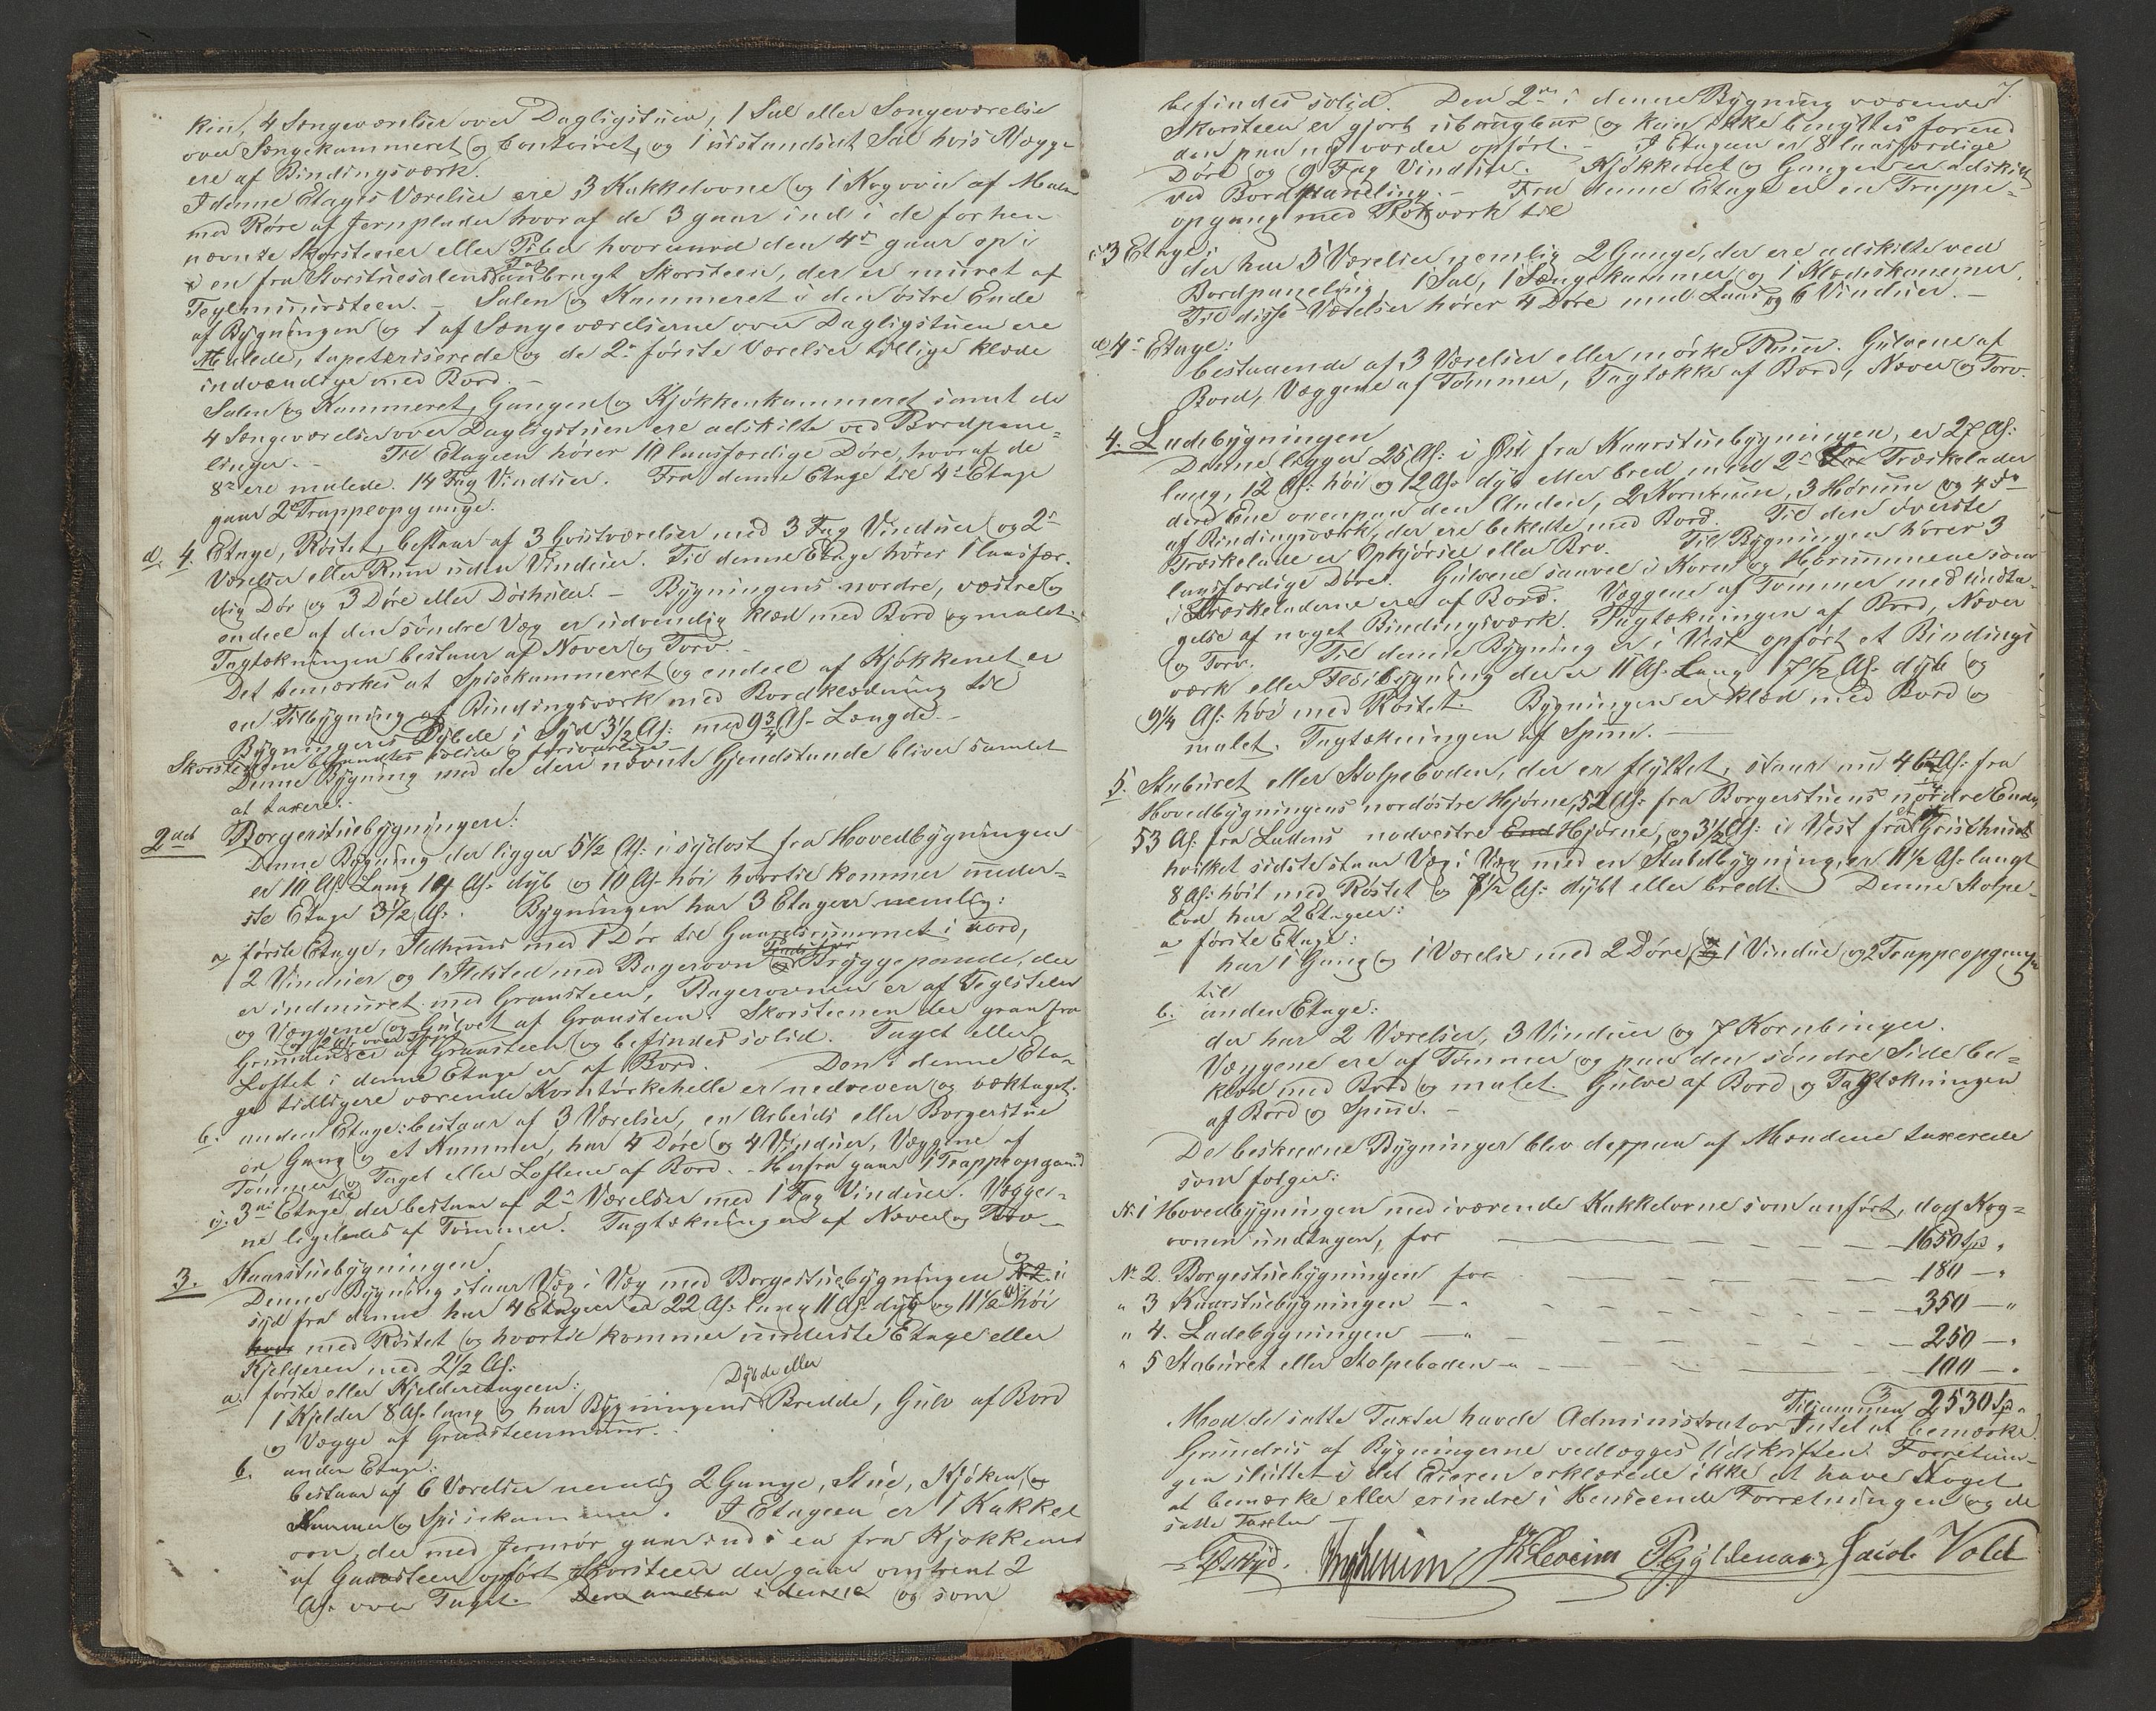 kin, 4 Sængeværelser over Dagligstuen, 1 Sal eller Sængeværelse
over Sængekammeret og Contoiret, og 1 uistandsat Sal hvis Vægge
ere af Bindingsværk.
I denne Etages Værelser ere 3 Kakkelovne og 1 Kogovn af Malm
med Røre af Jernplader hvoraf de 3 gaar ind i de forhen
nævnte Skorstener eller Piber hvorimod den 4de gaar op i
en fra Storstuesalens Tag anbragt Skorsteen, der er muret af
Teglmuursteen. - Salen og Kammeret i den østre Ende
af Bygningen og 1 af Sængeværelserne over Dagligstuen ere
Malede, tapetseriserede og de 2de første Værelser tillige klæde
indvendige med Bord. -
Salen og Kammeret, Gangen og Kjøkkenkammeret samt de
4 Sængeværelser over Dagligstuen ere adskilte ved Bordpane=
linger. - Til Etageen hører 10 laasfærdige Døre, hvoraf de
8te ere malede. 14 Fag Vinduer. Fra denne Etage til 4de Etage
gaar 2de Trappeopgange.
d. 4. Etage, Røstet, bestaar af 3 Qvistværelser med 3 Fag Vinduer og 2de
Værelser eller Rum uden Vinduer. Til denne Etage hører 1 laasfær-
dig Dør og 3 Døre eller Dørhuler. - Bygningens nordre, vestre og
endeel af den søndre Væg er udvendig klæd med Bord og malet.
Tagtækningen bestaar af Næver og Torv. -
Det bemærkes at Spisekammeret og endeel af Kjøkkenet er
en Tilbygning af Bindingsværk med Bordklædning til
Bygningens Dybde i Syd 3½ Al: med 9¾ Al- Længde. -
Skorstenene befandtes solide og forsvarlige -
Denne Bygning med de deri nævnte Gjendstande bliver samlet
at taxere. -
2det Borgerstuebygningen:
Denne Bygning der ligger 5½ Al: i sydost fra Hovedbygningen
er 10 Al: Lang 10 Al- dyb og 10 Al- høi hvortil kommer neder=
ste Etage 3½ Al-. Bygningen har 3 Etager nemlig:
a første Etage, Ildhuus med 1 Dør til Gaardsrummet i nord,
2 Vinduer og 1 Ildsted med Bagerovn og Bryggepande, der
er indmuret med Graasteen, Bagerovnen er af Teglsteen
og Væggene og Gulvet af Graasteen. Skorstenen der gaar fra
og 2 Al: over Taget
Grunden er af Graasteen og befindes solid. Taget eller
Loftet i denne Etage er af Bord. - Den i denne Eta-
ge tidligere værende Korntørkehelle er nedreven og væktaget.
b. anden Etage: bestaar af 3 Værelser, en Arbeids eller Borgerstue
en Gang og et Kammer, har 4 Døre og 4 Vinduer, Væggene af
Tømmer og Taget eller Loftene af Bord. - Herfra gaar 1 Trappeopgand
til
c. 3die Etage der bestaar af 2de Værelser med 1 Fag Vinduer. Vægge-
ne ligeledes af Tømmer. Tagtækningen af Næver og Torv -
3. Kaarstuebygningen.
Denne Bygning staar Væg i Væg med Borgestuebygningen og i
syd fra denne har 4 Etager er 22 Al: lang 11 Al: dyb og 11½ Al: høi
med Røstet og hvortil kommer underste Etage eller
Kjelderen med 2½ Al:
a. første eller Kjelderetageen:
Dybde eller
1 Kjelder 8 Al- lang og har Bygningens Bredde, Gulv af Bord
og Vægge af Graasteenmuur.
b. anden Etage:
bestaar af 6 Værelser nemlig 2 Gange, Stue, Kjøken og
Kammer og Spisekammer. I Etageen er 1 Kakkel
ovn, der med Jernrør gaar ind i en fra Kjøkkenet
af Graasteen opført Skorsteen der gaar omtrent 2
Al- over Taget. Den anden i denne og som
7.
befindes solid. Den 2den i denne Bygning værende
Skorsteen er gjort ubrugbar og kan ikke benyttes forend
den paa ny vorder opført. - I Etageen er 8 laasfærdige
Døre og 9 Fag Vinduer. Kjøkkenet og Gangen er adskilt
ved Bordpaneling. - Fra denne Etage er en Trappe=
opgang med Rækværk til
c. 3 Etage:
der har 5 Værelser nemlig 2 Gange, der ere adskilte ved
Bordpaneling, 1 Sal, 1 Sængekammer og 1 Klædeskammer.
Til disse Værelser hører 4 Døre med Laas og 6 Vinduer. -
d 4de Etage:
bestaaende af 3 Værelser eller mørke Rum. Gulvene af
Bord, Væggene af Tømmer, Tagtække af Bord, Næver og Torv.
4. Ladebygningen
Denne ligger 25 Al: i Øst fra Kaarstuebygningen, er 27 Al:
lang, 12 Al: høi og 12 Al- dyb eller bred med 2de Træskelader
den Ene ovenpaa den Anden, 2 Kornrum, 3 Hørum og 4 do
af Bindingsværk, der ere beklædte med Bord. Til den øverste
Træskelade er Opkjørsel eller Bro. Til Bygningen hører 3
laasfærdige Døre. Gulvene saavel i Korn og Hørummene som
i Træskeladerne ere af Bord. Væggene af Tømmer med undta-
gelse af noget Bindingsværk. Tagtækningen af Bord, Næver
og Torv. Til denne Bygning er i Vest opført et Bindings
værk eller Fløibygning der er 11 Al- Lang 7½ Al- dyb og
9¼ Al: høi med Røstet. Bygningen er klæd med Bord og
malet. Tagtækningen af Spaan. -
5. Staburet eller Stolpeboden, der er flyttet, staar nu 46 Al: fra
Hovedbygningens nordøstre Hjørne, 52 Al: fra Borgerstuens nordre Ende
53 Al. fra Ladens nodvestre End Hjørne, og 3½ Al: i Vest fra et Grisehuus
hvilket sidste staar Væg i Væg med en Staldbygning, er 11½ Al- langt
8 Al: høit med Røstet og 7½ Al: dybt eller bredt. Denne Stolpe-
bod har 2 Etager:
a første Etage:
har 1 Gang og 1 Værelse med 2 Døre, 1 Vindue og 2 Trappeopgange
til
b. anden Etage:
der har 2 Værelser, 3 Vinduer og 7 Kornbinger.
Væggene ere af Tømmer og paa den søndre Side be=
klæd med Bord og malet. Gulve af Bord og Tagtækningen
af Bord og Spaan. -
De beskrevne Bygninger blev deppaa af Mændene taxerede
som følger:
No 1 Hovedbygningen med iværende Kakkelovne som anført, dog Kog=
ovnen undtagen, for - 1650 Spd "
No 2. Borgestuebygningen for - 180 - "
" 3 Kaarstuebygningen - " - 350 - "
" 4. Ladebygningen - " - 250 - "
" 5 Staburet eller Stolpeboden - " - 100 - "
Tilsammen 2530 Spd "
Mod de satte Taxter havde Administrator Intet at bemærke.
Grundris af Bygningerne vedlægges Udskriften. Forretnin-
gen sluttet i det Eieren erklærede ikke at have Noget
at bemærke eller erindre i Henseende Forretningen og de
satte Taxter -
Jacob Vold